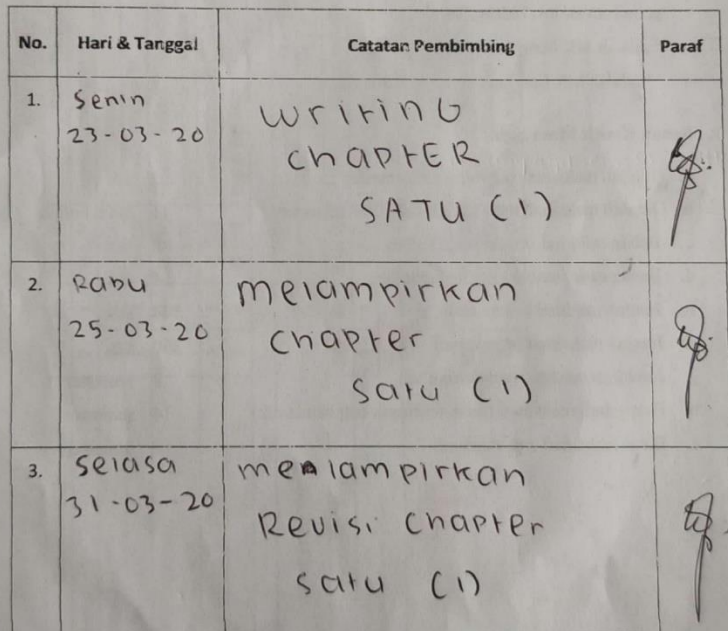 No. Hari & Tanggal Catatan Pembimbing Paraf
1. Senin
23-03-20
WRITING
ChapTER
SATU (1)
2. Rabu
25-03-20
melampirkan
Chapter
Satu (1)
3. Selasa
31-03-20
melampirkan
Revisi Chapter
Satu (1)